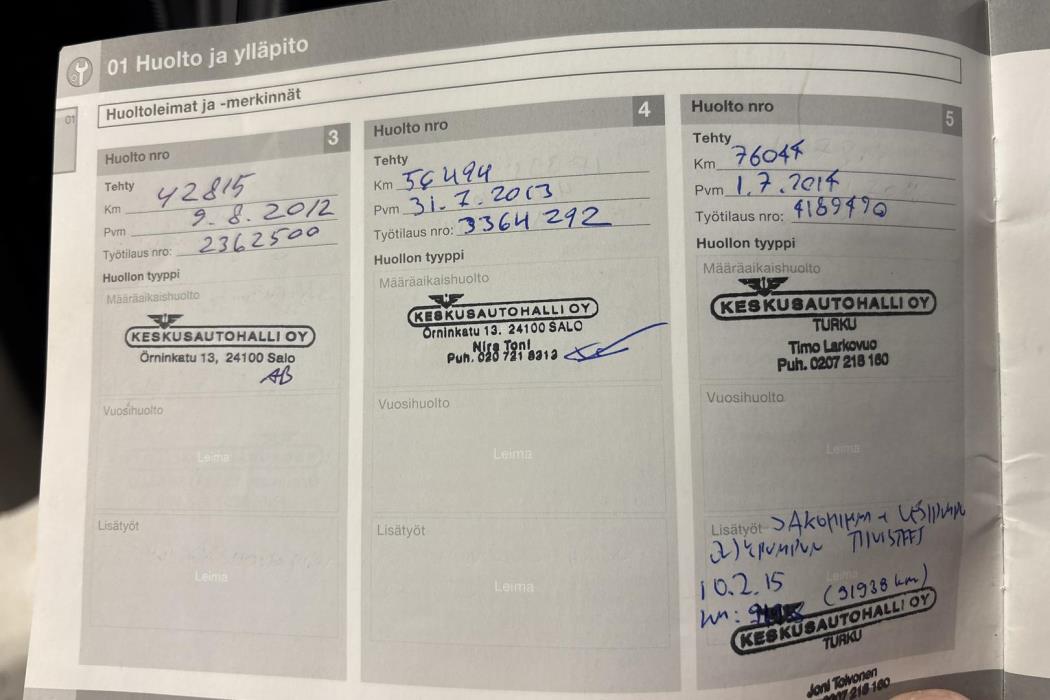 01 Huolto ja ylläpito
01
Huoltoleimat ja -merkinnät
Huolto nro 3
Tehty
Km 42815
Pvm 9.8.2012
Työtilaus nro: 2362500
Huollon tyyppi
Määräaikaishuolto
KESKUSAUTOHALLI OY
Örninkatu 13, 24100 Salo
AB
Vuosihuolto
Leima
Lisätyöt
Leima
Huolto nro 4
Tehty
Km 56494
Pvm 31.7.2013
Työtilaus nro: 3364292
Huollon tyyppi
Määräaikaishuolto
KESKUSAUTOHALLI OY
Örninkatu 13. 24100 SALO
Nira Toni
Puh. 020 721 8312
Vuosihuolto
Leima
Lisätyöt
Leima
Huolto nro 5
Tehty
Km 76044
Pvm 1.7.2014
Työtilaus nro: 4189490
Huollon tyyppi
Määräaikaishuolto
KESKUSAUTOHALLI OY
TURKU
Timo Larkovuo
Puh. 0207 218 160
Vuosihuolto
Leima
Lisätyöt
TIIVISTEET
Leima
10.2.15 (91938 km)
km:
KESKUSAUTOHALLI OY
TURKU
Joni Toivonen
0207 218 160